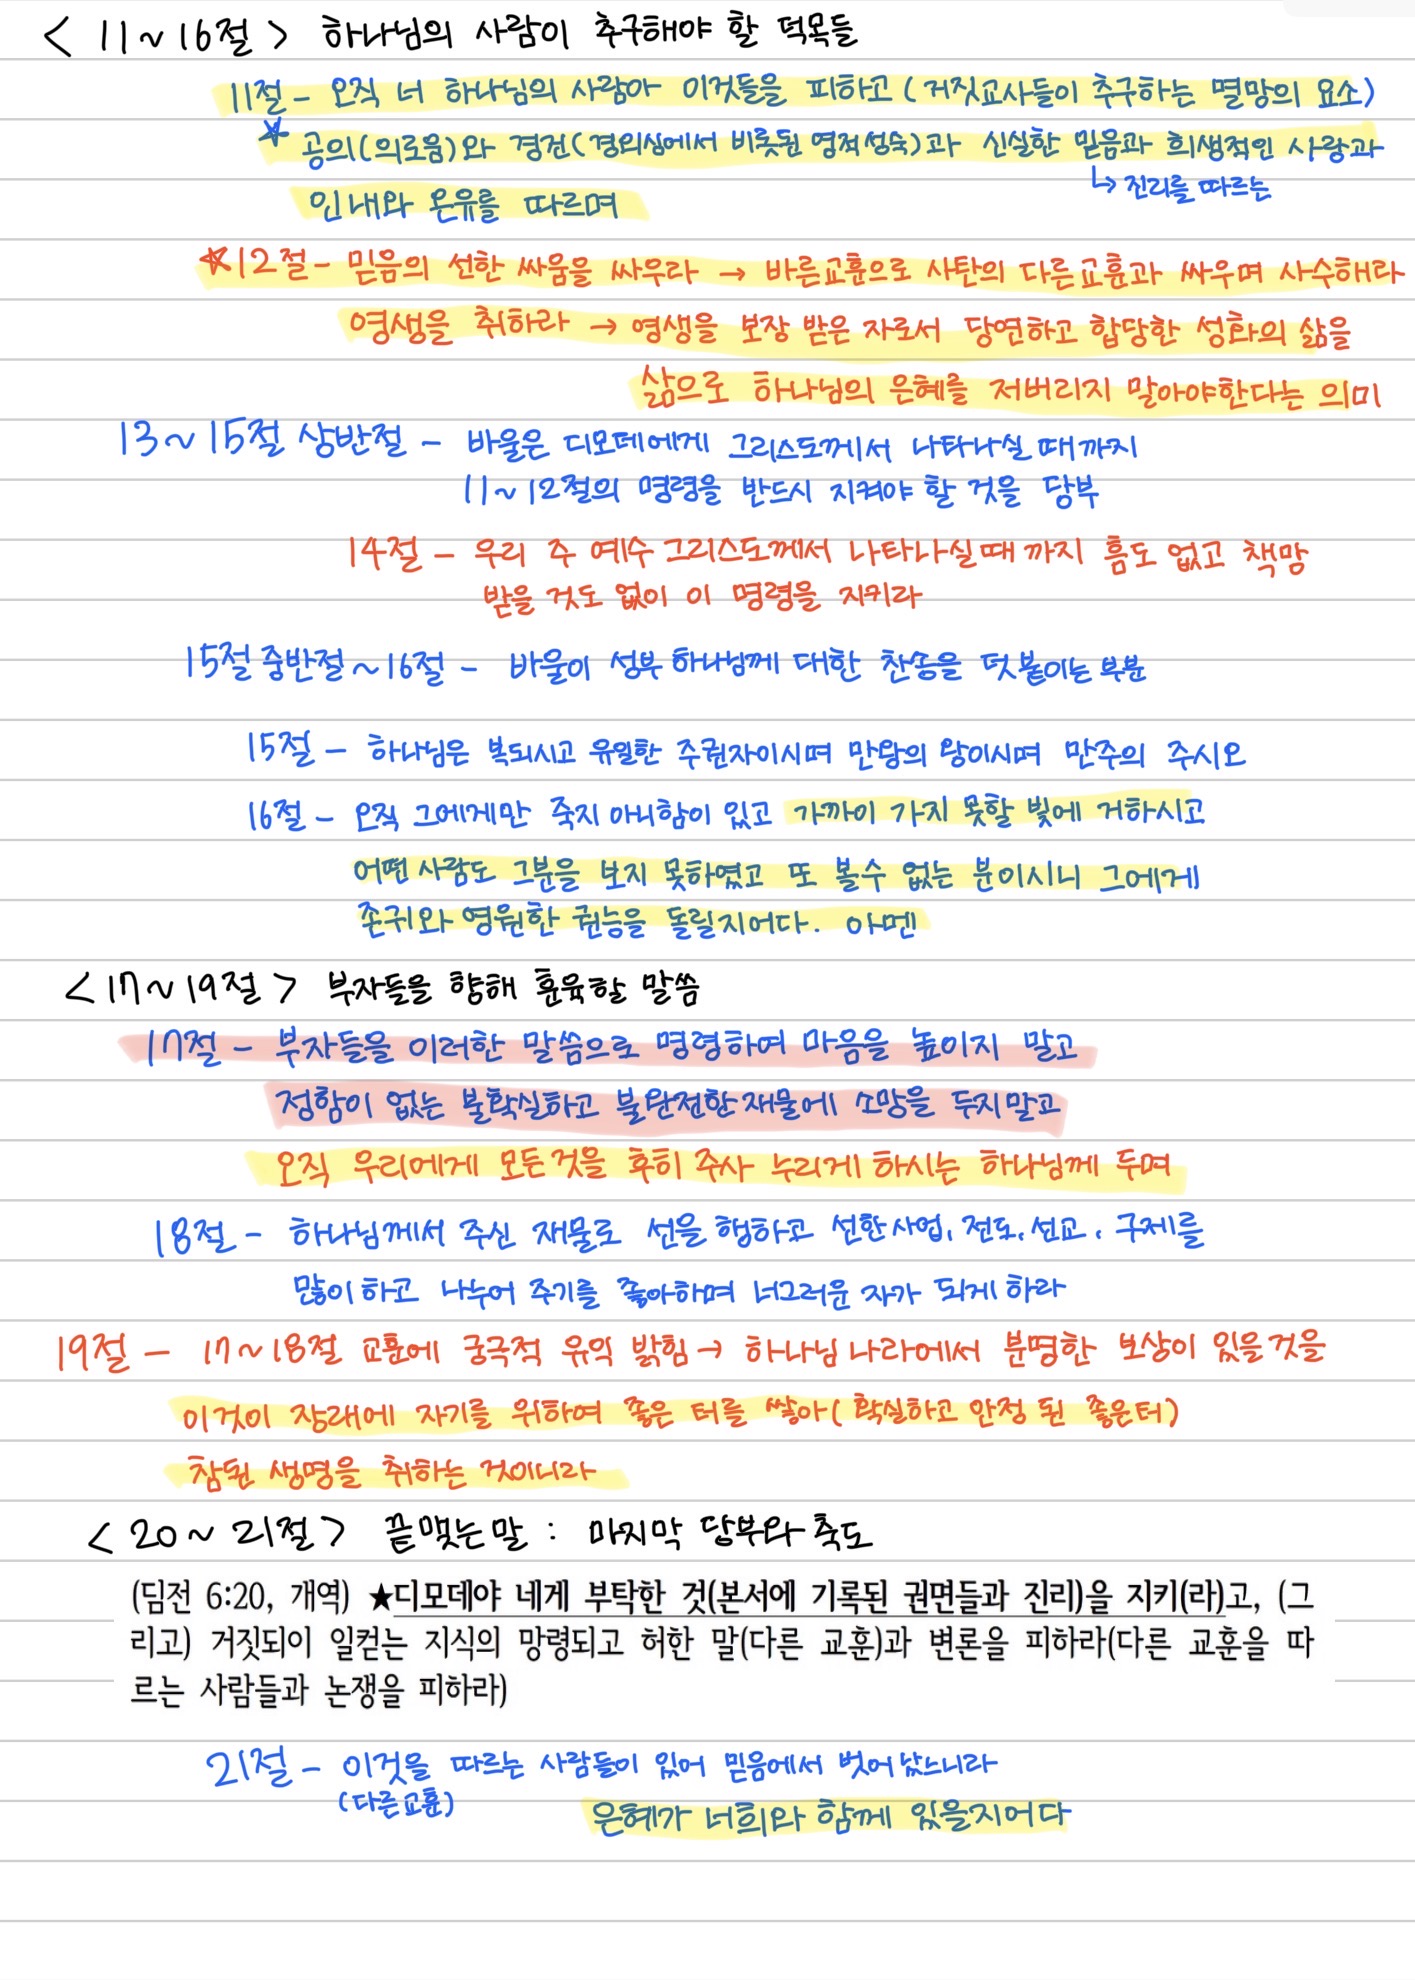 < 11~16절 > 하나님의 사람이 추구해야 할 덕목들
11절 - 오직 너 하나님의 사람아 이것들을 피하고 (거짓교사들이 추구하는 멸망의 요소)
☆ 공의(의로움)와 경건(경외심에서 비롯된 영적성숙)과 신실한 믿음과 희생적인 사랑과
↳ 진리를 따르는
인내와 온유를 따르며
☆12절 - 믿음의 선한 싸움을 싸우라 → 바른교훈으로 사탄의 다른교훈과 싸우며 사수해라
영생을 취하라 → 영생을 보장 받은 자로서 당연하고 합당한 성화의 삶을
삶으로 하나님의 은혜를 저버리지 말아야한다는 의미
13~15절 상반절 - 바울은 디모데에게 그리스도께서 나타나실 때까지
11~12절의 명령을 반드시 지켜야 할 것을 당부
14절 - 우리 주 예수 그리스도께서 나타나실때 까지 흠도 없고 책망
받을 것도 없이 이 명령을 지키라
15절 중반절~16절 - 바울이 성부 하나님께 대한 찬송을 덧붙이는 부분
15절 - 하나님은 복되시고 유일한 주권자이시며 만왕의 왕이시며 만주의 주시오
16절 - 오직 그에게만 죽지 아니함이 있고 가까이 가지 못할 빛에 거하시고
어떤 사람도 그분을 보지 못하였고 또 볼수 없는 분이시니 그에게
존귀와 영원한 권능을 돌릴지어다. 아멘
<17~19절> 부자들을 향해 훈육할 말씀
17절 - 부자들을 이러한 말씀으로 명령하여 마음을 높이지 말고
정함이 없는 불확실하고 불완전한 재물에 소망을 두지말고
오직 우리에게 모든것을 후히 주사 누리게 하시는 하나님께 두며
18절 - 하나님께서 주신 재물로 선을 행하고 선한사업, 전도, 선교, 구제를
많이하고 나누어 주기를 좋아하며 너그러운 자가 되게 하라
19절 - 17~18절 교훈에 궁극적 유익 밝힘 → 하나님 나라에서 분명한 보상이 있을것을
이것이 장래에 자기를 위하여 좋은 터를 쌓아(확실하고 안정 된 좋은터)
참된 생명을 취하는 것이니라
<20~21절> 끝맺는말 : 마지막 당부와 축도
(딤전 6:20, 개역) ★디모데야 네게 부탁한 것(본서에 기록된 권면들과 진리)을 지키(라)고, (그
리고) 거짓되이 일컫는 지식의 망령되고 허한 말(다른 교훈)과 변론을 피하라(다른 교훈을 따
르는 사람들과 논쟁을 피하라)
21절 - 이것을 따르는 사람들이 있어 믿음에서 벗어났느니라
(다른교훈)
은혜가 너희와 함께 있을지어다